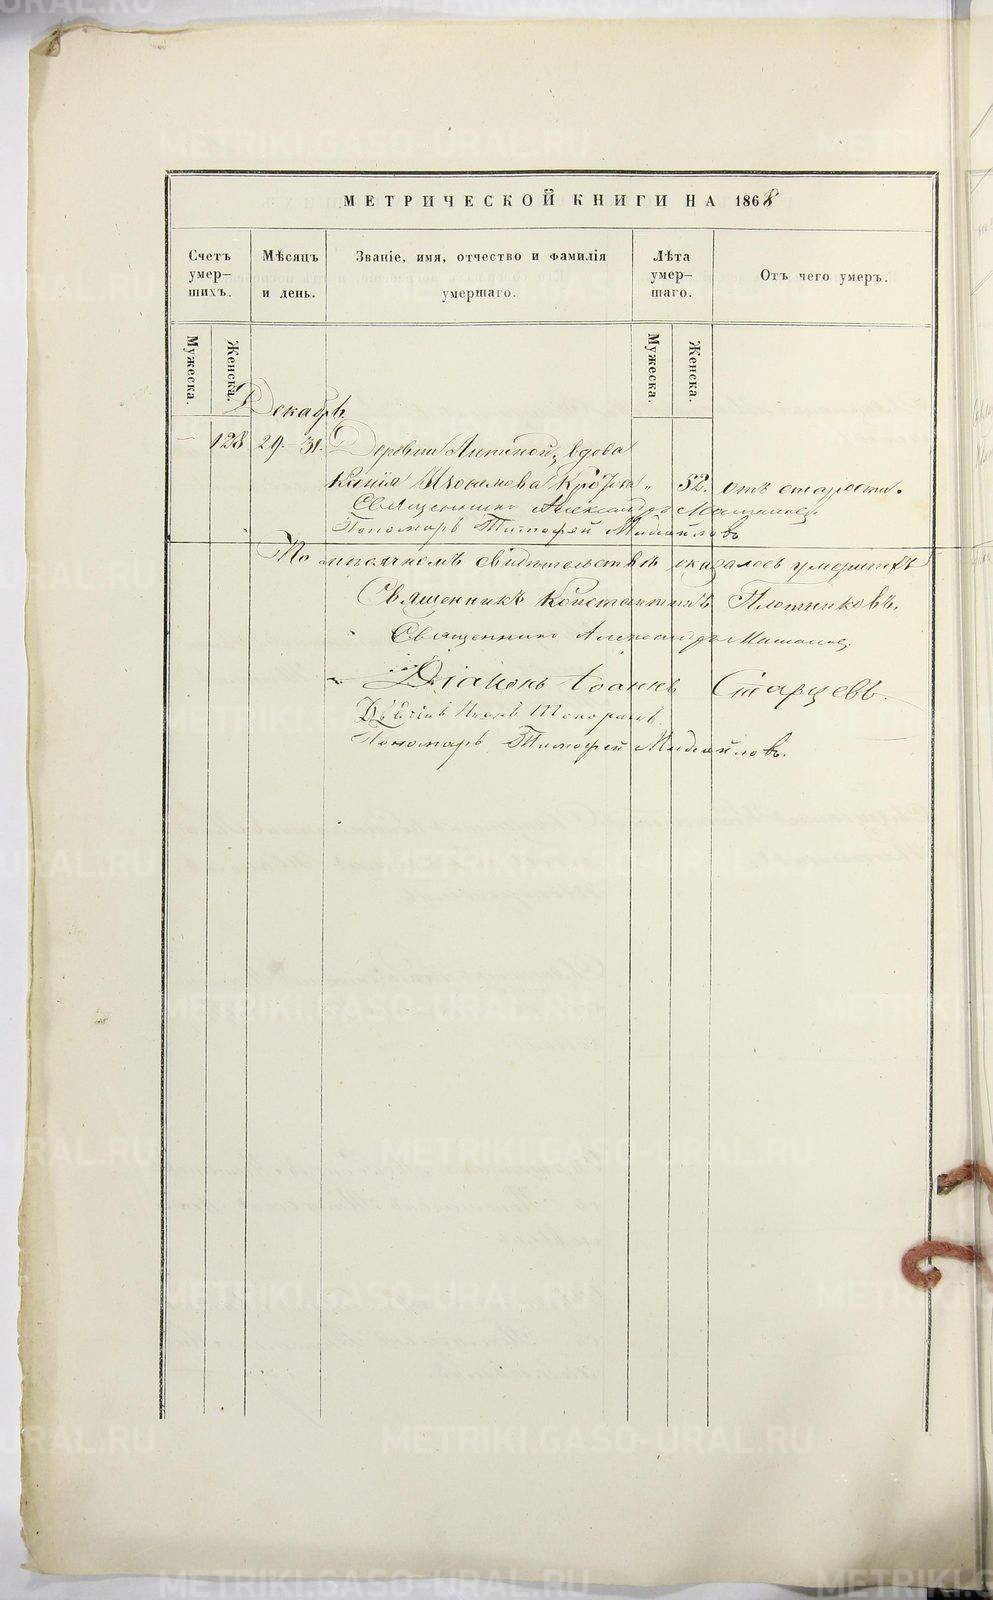 МЕТРИЧЕСКОЙ КНИГИ НА 1868
Счетъ умер-шихъ.
Мѣсяцъ и день.
Званіе, имя, отчество и фамилія умершаго.
Лѣта умер-шаго.
Отъ чего умеръ.
Мужеска.
Женска.
Мужеска.
Женска.
Декабрь
128 29. 31. Деревни вдова
82. отъ старости.
Священникъ Александръ
Пономарь Тимофей Михайловъ
По мѣсячномъ свидѣтельствѣ оказалось умершихъ
Священникъ Константинъ Плотниковъ.
Священникъ Александръ
Діаконъ Іоаннъ Старцевъ.
Пономарь Тимофей Михайловъ.
METRIKI.GASO-URAL.RU